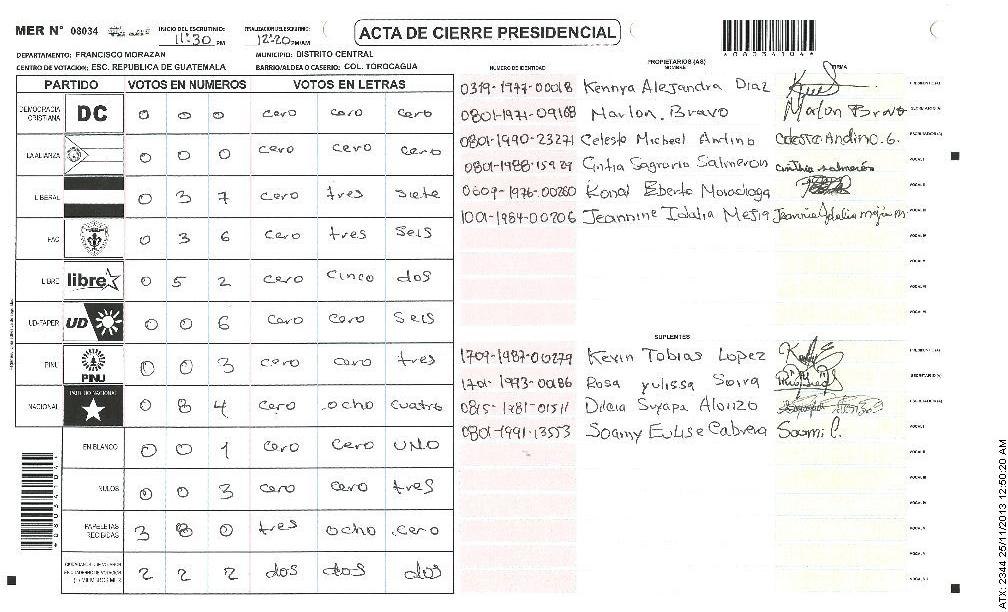 MER N° 08034 INICIO DEL ESCRUTINIO: 11:30 PM FINALIZACION DEL ESCRUTINIO: 12:20 PM/AM ACTA DE CIERRE PRESIDENCIAL
DEPARTAMENTO: FRANCISCO MORAZAN MUNICIPIO: DISTRITO CENTRAL
CENTRO DE VOTACION: ESC. REPUBLICA DE GUATEMALA BARRIO/ALDEA O CASERIO: COL. TOROCAGUA
*08034104*
PARTIDO VOTOS EN NUMEROS VOTOS EN LETRAS
DEMOCRACIA CRISTIANA DC 0 0 0 cero cero cero
LA ALIANZA 0 0 0 cero cero cero
LIBERAL 0 3 7 cero tres siete
PAC 0 3 6 cero tres seis
LIBRE libre 0 5 2 cero cinco dos
UD-FAPER UD 0 0 6 cero cero seis
PINU PINU 0 0 3 cero cero tres
NACIONAL PARTIDO NACIONAL 0 8 4 cero ocho cuatro
EN BLANCO 0 0 1 cero cero uno
NULOS 0 0 3 cero cero tres
PAPELETAS RECIBIDAS 3 8 0 tres ocho cero
2 2 2 dos dos dos
PROPIETARIOS (AS)
NUMERO DE IDENTIDAD NOMBRE FIRMA
0319-1977-00018 Kennya Alejandra Diaz PRESIDENTE(A)
0801-1971-09168 Marlon Bravo Marlon Bravo SECRETARIO(A)
0801-1990-23271 Celeste Micheel Andino Celeste Andino. G. ESCRUTADOR(A)
0801-1988-15929 Cintia Sagrario Salmeron Cinthia Salmerón VOCAL I
0609-1976-00280 Eberto VOCAL II
1001-1984-00206 Jeannine Idalia Mejia Jeannine Idalia mejia m. VOCAL III
VOCAL IV
VOCAL V
VOCAL VI
SUPLENTES
1709-1987-00279 Kevin Tobias Lopez PRESIDENTE(A)
1701-1973-00186 Rosa Yulissa SECRETARIO(A)
0815-1981-01511 Dilcia Suyapa Alonzo ESCRUTADOR(A)
0801-1991-13553 Soamy Eulise Cabrera Soami C. VOCAL I
VOCAL II
VOCAL III
VOCAL IV
VOCAL V
ATX: 2344 25/11/2013 12:50:20 AM